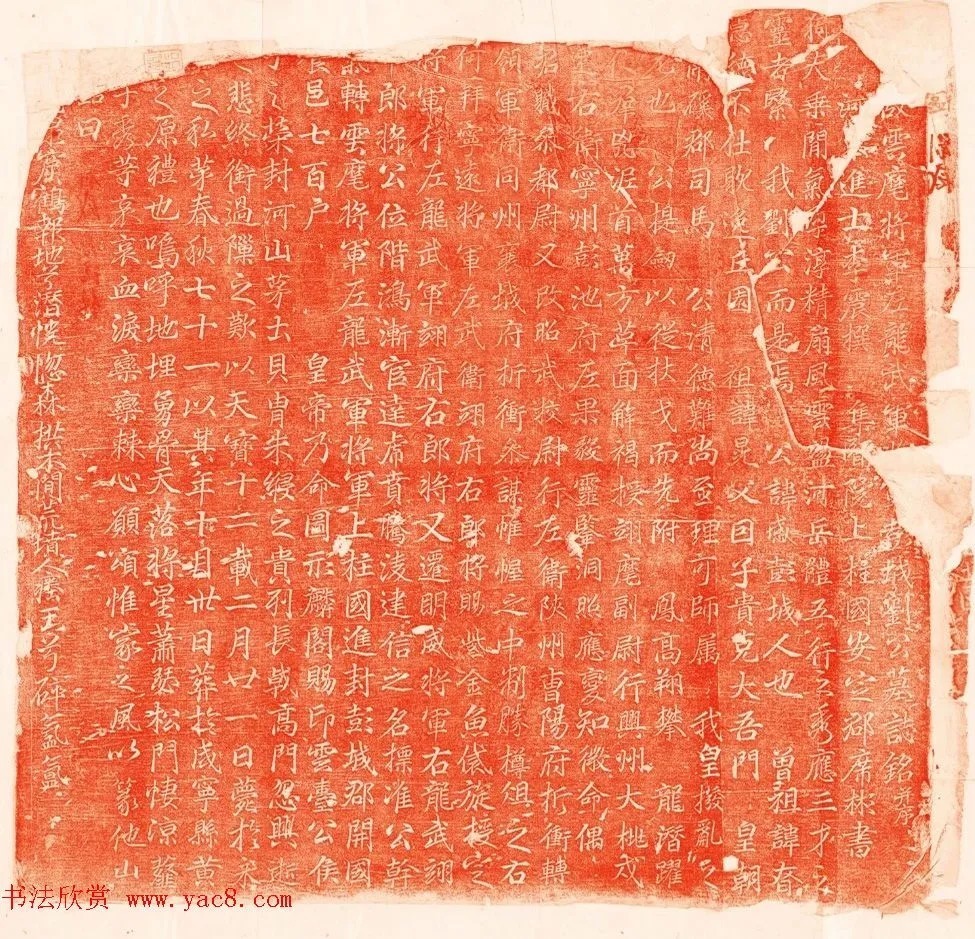 故雲麾將軍左龍武軍彭城劉公墓誌銘并序
進士李震撰 上柱國安定郡席彬書
夫乗閒氣孕淳精扇風雲盈河岳體五行之秀應三才之
靈者繄我劉公而是焉 公諱感彭城人也 曾祖諱春
不仕耽逸丘園 祖諱晃父曰子貴克大吾門 皇朝
磔郡司馬 公清德難尚至理可師属 我皇撥亂之
也 公提劒以從杖戈而先附 鳳高翔攀 龍潛躍
首萬方革面解褐授翊麾副尉行興州大桃戍
右衛寧州彭池府左果毅靈鑒洞照應變知微命偶
職叅都尉又改昭武挍尉行左衛陝州曺陽府折衝轉
領軍衛同州襄城府折衝叅謀惟幄之中淛勝樽俎之右
拜寧遠將軍左武衛翊府右郎將賜紫金魚俻旋授定
軍行左龍武軍翊府右郎將又遷明威將軍右龍武翊
郎將公位階鴻漸官達虎賁騰淩建信之名標准公幹
轉雲麾將軍左龍武軍將軍上柱國進封彭城郡開國
邑七百户 皇帝乃命圖形麟閣賜印雲臺公侯
之榮封河山茅土貝胄朱綬之貴列長戟高門忽興逝
悲終銜過隟之歎以天寶十二載二月廿一日薨於来
之私茅春秋七十一以其年十月卅日葬扵咸寧縣黄
之原禮也嗚呼地埋勇骨天落將星蕭瑟松門悽凉
子 等哀哀血淚欒欒棘心願頌惟家之風以篆他山
曰
鶴郡地兮潛恍惚森拱木閒
书法欣赏 www.yac8.com